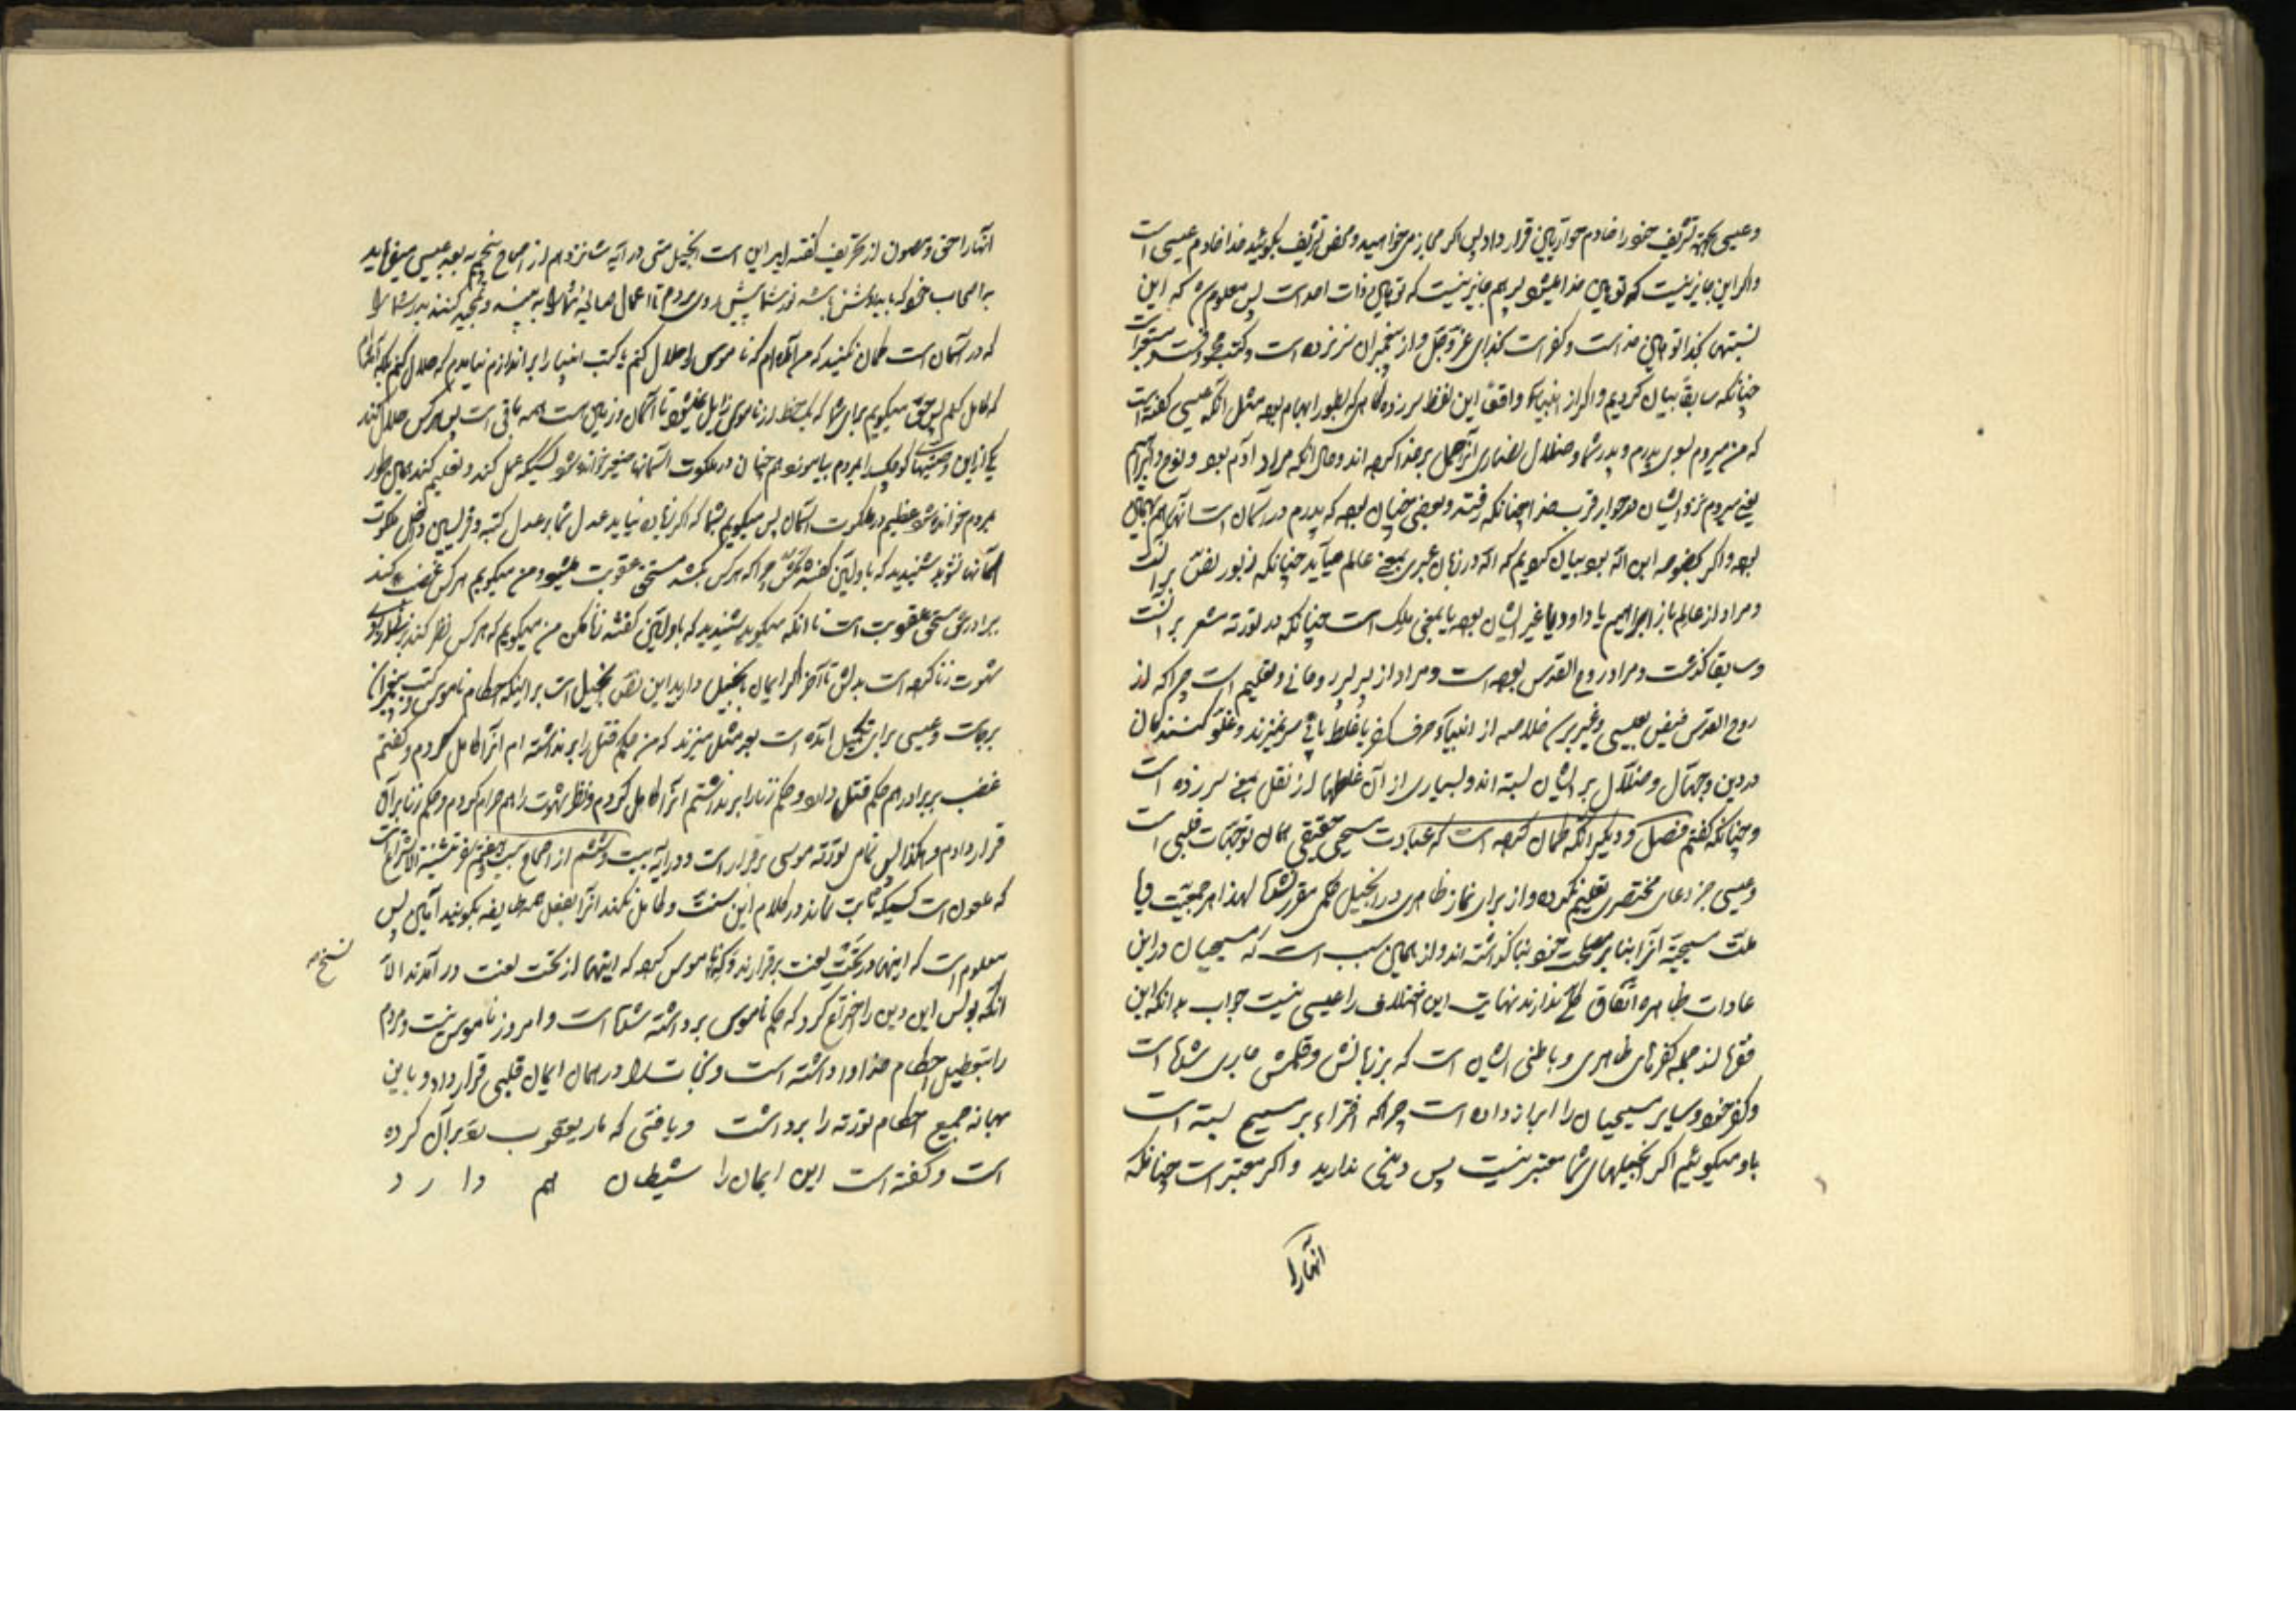 و عیسی بجهة تشریف خود را خادم حواریین قرار داد پس اگر مجاز میخواهید و محض تشریف بگوئید خدا خادم عیسی است
و اگر این جایز نیست که توهین خدا میشود پدر هم جایز نیست که توهین ذات احد است پس معلوم شد که این
نسبتها بخدا توهین خداست و کفر است بخدای عز و جل و از پیغمبران سر نزده است و کتب
چنانکه سابقا بیان کردیم و اگر از انبیا واقعا این لفظ سر زده گاهی که بطور ابهام بوده مثل آنکه عیسی گفته است
که من میروم بسوی پدرم و پدر شما و ضلال نصاری آنرا حمل بر خدا کرده اند و حال آنکه مراد آدم بود و نوح و ابراهیم
یعنی میروم نزد ایشان در جوار قرب خدا چنانکه رفتند و بعضی چنان بوده که پدرم در آسمان است آنهم همین
بوده و اگر بخصوصه ابن اله بود بیان کردیم که اله در زبان عبری بمعنی عالم میآید چنانکه زبور نص بر آنست
و مراد از عالم باز ابراهیم یا داود یا غیر ایشان بوده یا بمعنی ملک است چنانکه در تورته مشعر بر آنست
و سابقا گذشت و مراد روح القدس بوده است و مراد از پدر پدر روحانی و تعلیم است چرا که از
روح القدس فیض بعیسی و غیره رسید خلاصه از انبیاء حرف کفر یا غلط یا سر نمیزند و غلو کنندگان
در دین و جهال و ضلال بر ایشان بسته اند و بسیاری از آن غلطها از نقل بمعنی سر زده است
و چنانکه گفتم مفصل و دیگر آنکه گمان کرده است که عبادت مسیحی حقیقی همان توجهات قلبی است
و عیسی جز دعای مختصری تعلیم نکرده و از برای نماز ظاهری در انجیل حکمی مقرر نشده لهذا هر جمعیت
ملت مسیحیه آنرا بنا بر مصلحت خود بنا گذاشته اند و از همین سبب است که مسیحیان در این
عادات ظاهره اتفاق کلی ندارند نهایت این اختلاف را عیسی نیست جواب بدانکه این
فقرها از جمله کفرهای ظاهری و باطنی ایشان است که بر زبانش و قلمش جاری شده است
و کفر خود و سایر مسیحیان را ابراز داده است چرا که افتراء بر مسیح بسته است
باو میگوئیم اگر انجیلهای شما معتبر نیست پس دینی ندارید و اگر معتبر است چنانکه
آنها را
آنها را حق و مصون از تحریف گفته اید این است انجیل متی در آیه شانزدهم از اصحاح پنجم بعد عیسی میفرماید
به اصحاب خود که باید روشن باشد نور شما پیش روی مردم تا اعمال صالحه شما را به بینند و تمجید کنند پدر شما را
که در آسمان است گمان نکنید که من آمده ام که ناموس را حلال کنم یا کتب انبیا را براندازم نیامدم که حلال کنم بلکه آمده ام
که کامل کنم پس حق میگویم برای شما که یک خط از ناموس زایل نمیشود تا آسمان و زمین است همه باقی است پس هر کس حلال کند
یکی از این وصیتهای کوچک را بمردم بیاموزد هم چنان در ملکوت آسمانها صغیر خوانده شود کسیکه عمل کند و تعلیم کند همین طور
مردم خوانده شود عظیم در ملکوت آسمان پس میگویم بشما که اگر زیاده نیاید عدل شما بر عدل کتبه و فریسین داخل ملکوت
آسمانها نشوید شنیدید که باولین گفته شد مکش چرا که هر کس بکشد مستحق عقوبت میشود و من میگویم هر کس غضب کند
برادرش مستحق عقوبت است تا آنکه میگوید شنیدید که باولین گفته شد زنا مکن من میگویم که هر کس نظر کند بزنی نظر از روی
شهوت زنا کرده است بدلش تا آخر اگر ایمان بانجیل دارید این نص انجیل است بر اینکه احکام ناموس و کتب پیغمبران
برجاست و عیسی برای تکمیل آمده است بعد مثل میزند که من حکم قتل را برنداشته ام آنرا کامل کردم و گفتم
غضب بر برادر هم حکم قتل دارد و حکم زنا را برنداشتم آنرا کامل کردم و نظر شهوت را هم حرام کردم و حکم زنا بر آن
قرار دادم و هکذا پس تمام تورته موسی برقرار است و در آیه بیست و ششم از اصحاح بیست و هفتم سفر تثنیة الاشتراع است
که ملعون است کسیکه ثابت نماند در کلام این سنت و کامل نکند آنرا بفعل همه طایفه بگویند آمین پس
معلوم است که اینها در تحت لعنت برقرارند و که ناموس کرده که اینها از تحت لعنت درآمدند الا
آنکه بولس این دین را اختراع کرد که حکم ناموس برداشته شده است و امروز ناموس نیست و مردم
را بتعطیل احکام خدا واداشته است و نجات را در همان ایمان قلبی قرار داد و باین
بهانه جمیع احکام تورته را برداشت و یافتی که مار یعقوب رد بر آن کرده
است و گفته است این ایمان را شیطان هم دارد
نسخ